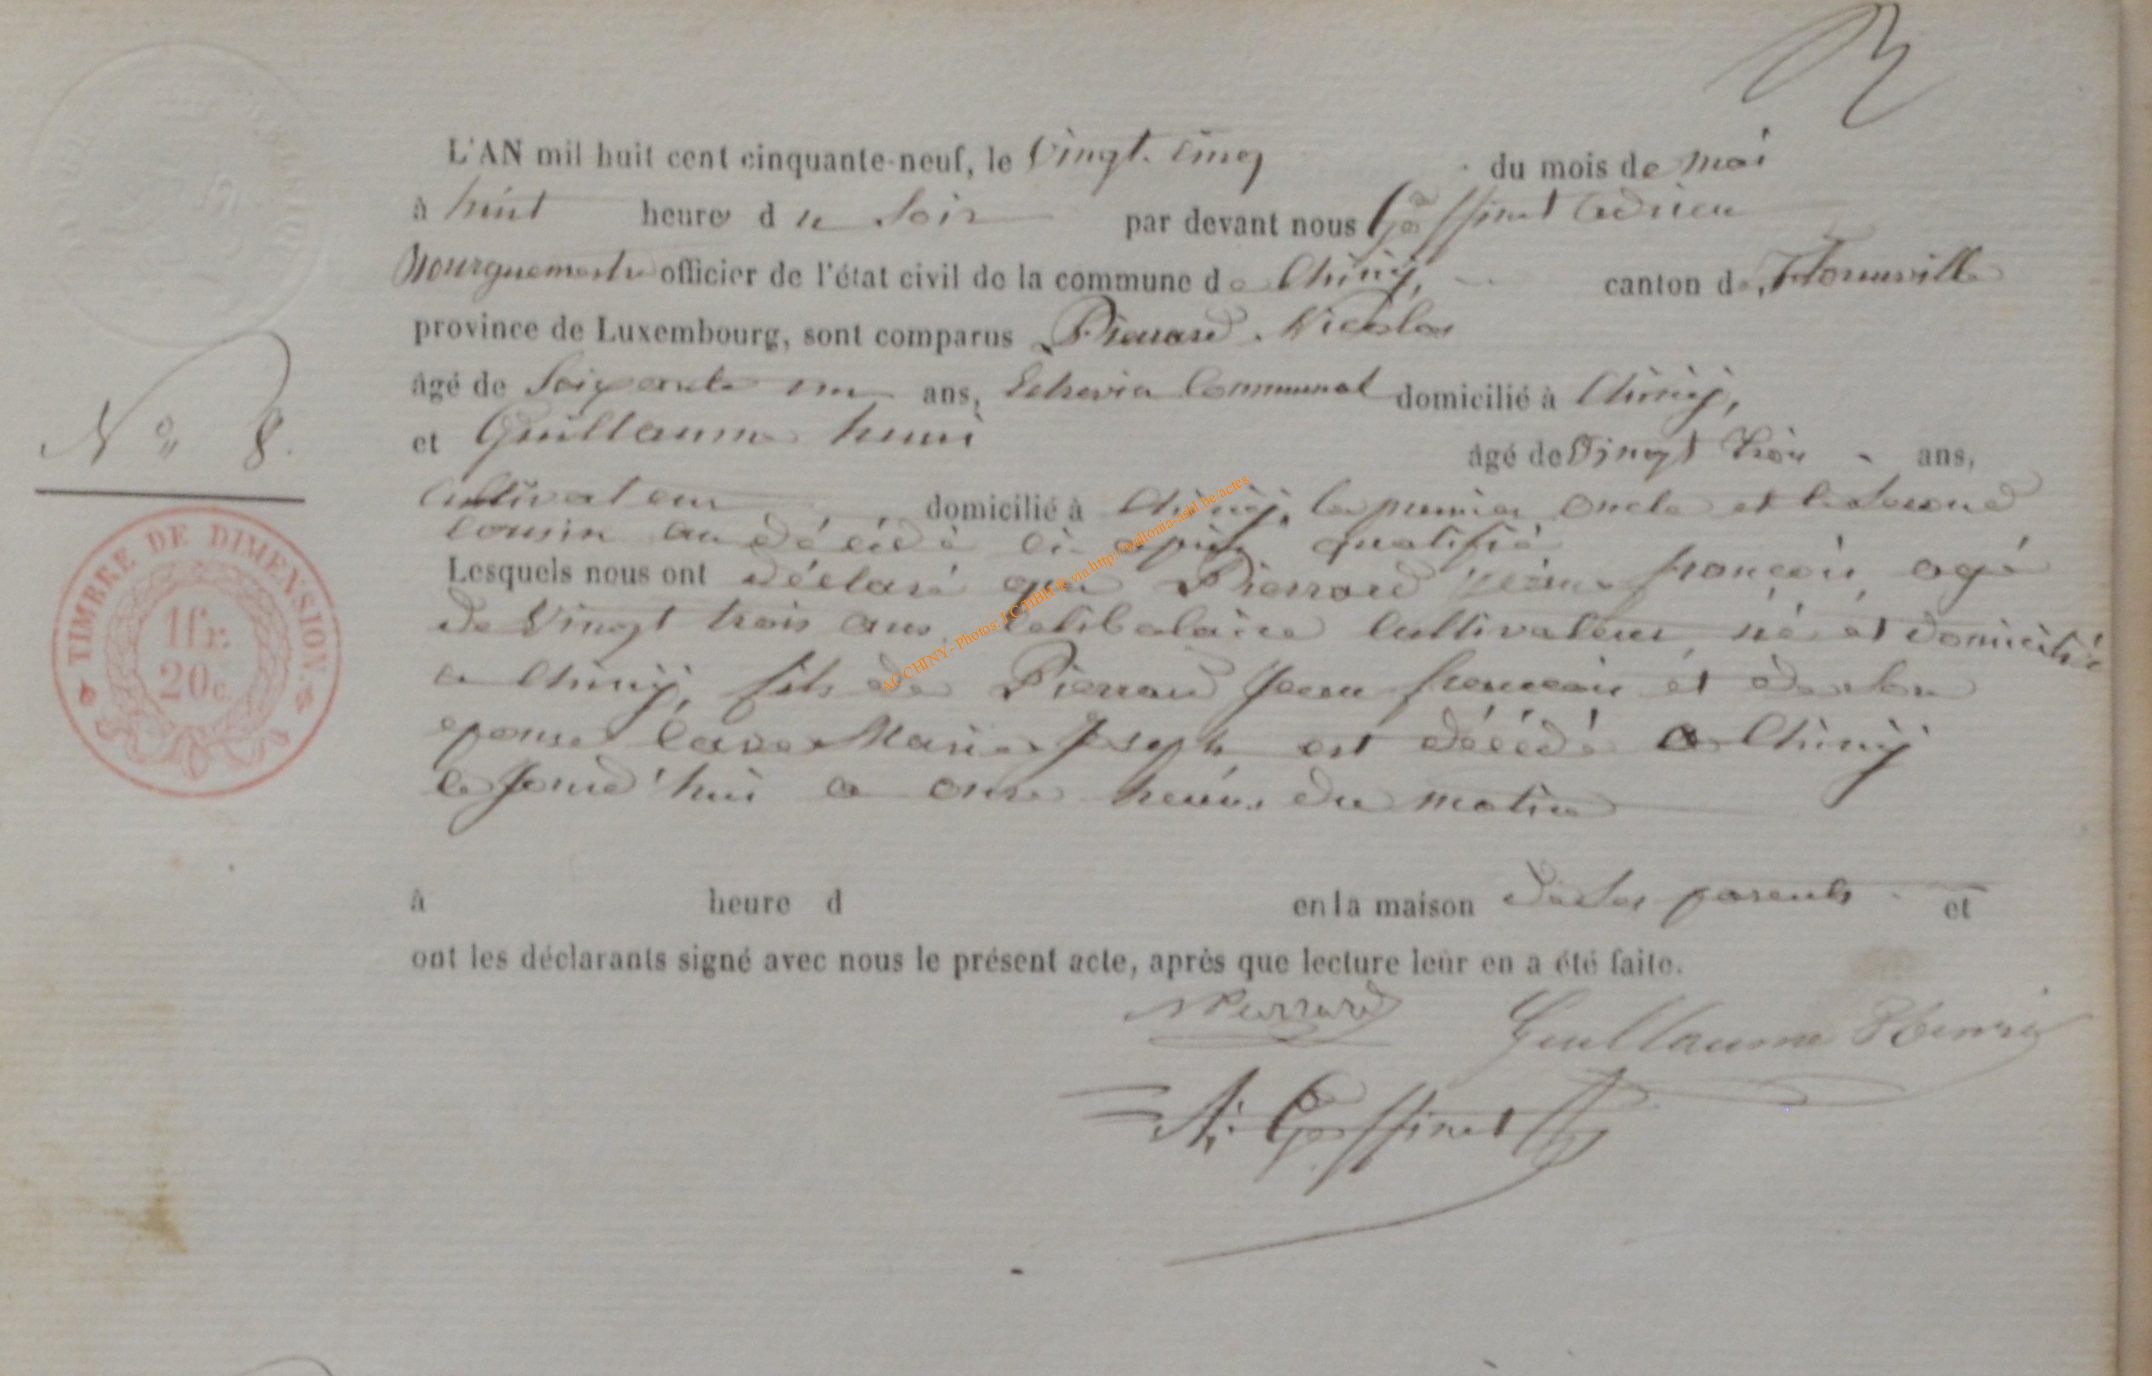 L'AN mil huit cent cinquante-neuf, le Vingt-cinq du mois de mai
à huit heures du Soir par devant nous Goffinet Adrien
Bourguemestre officier de l'état civil de la commune de Chiny, canton de Florenville
province de Luxembourg, sont comparus Pierrard Nicolas
âgé de Soixante un ans, Echevin Communal domicilié à Chiny,
et Guillaume henri âgé de Vingt trois ans,
N° 8.
Cultivateur domicilié à Chiny, le premier oncle et le Second
Cousin au décédé ci après qualifié
Lesquels nous ont déclaré que Pierrard jean françois agé
de Vingt trois ans Celibataire Cultivateur né et domicilié
a Chiny, fils de Pierrard Jean francois et de Son
epouse Marie Joseph est décédé a Chiny
le Jourd'hui a onze heures du matin
à heure d en la maison de Ses parents et
ont les déclarants signé avec nous le présent acte, après que lecture leur en a été faite.
NPierrard Guillaume Henri
A. Goffinet
TIMBRE DE DIMENSION.
1fr.
20c.
AC CHINY - Photos: J.C TIBIT © via http://palloma-asbl.be/actes